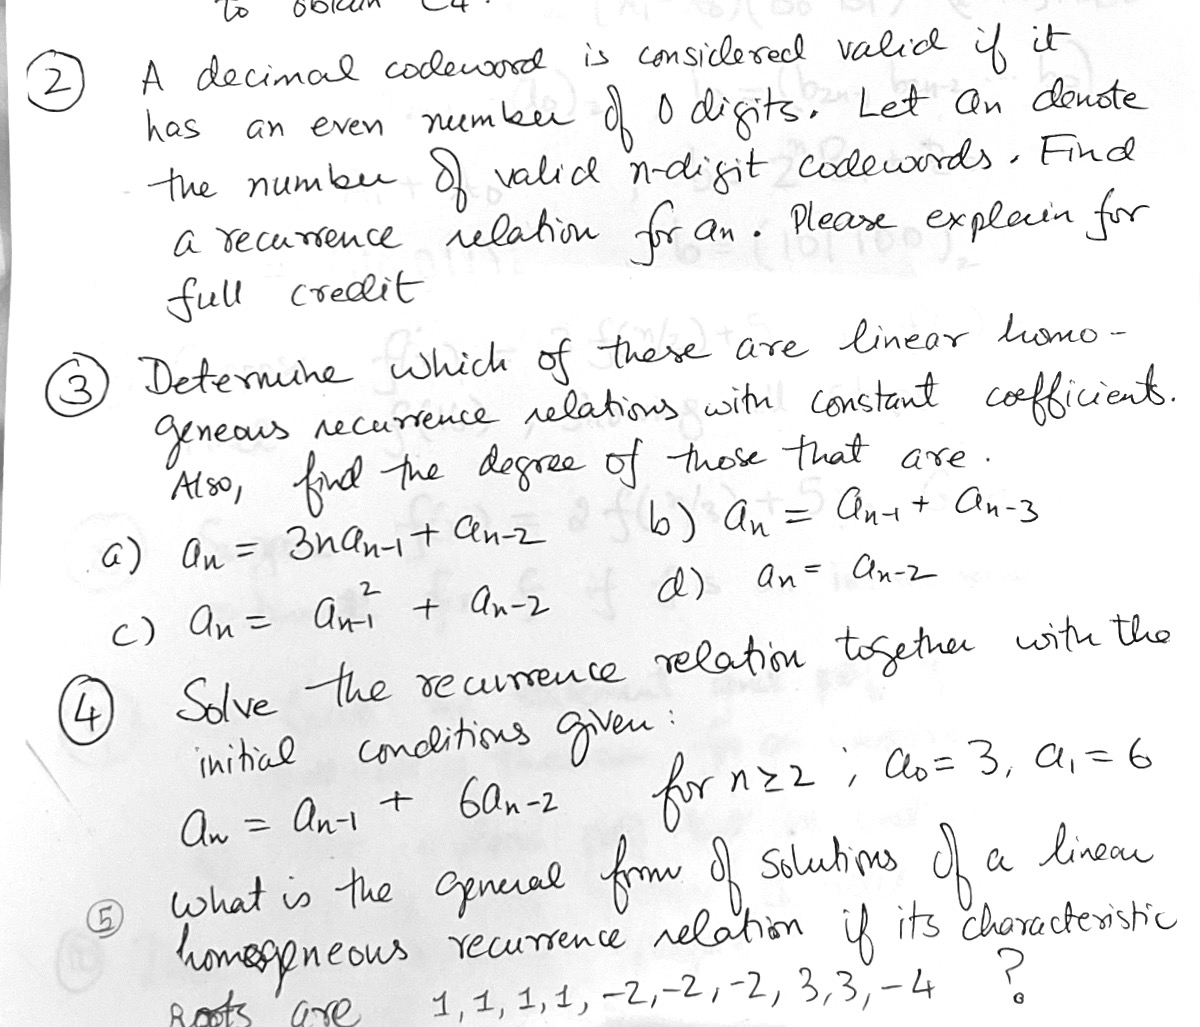 to obtain C4.
② A decimal codeword is considered valid if it
has an even number of 0 digits. Let an denote
the number of valid n-digit codewords. Find
a recurrence relation for an. Please explain for
full credit
③ Determine which of these are linear homo-
geneous recurrence relations with constant coefficients.
Also, find the degree of those that are.
a) an = 3nan-1 + an-2 b) an = an-1 + an-3
c) an = an-1² + an-2 d) an = an-2
④ Solve the recurrence relation together with the
initial conditions given:
an = an-1 + 6an-2 for n≥2 ; a0 = 3, a1 = 6
⑤ What is the general form of solutions of a linear
homogeneous recurrence relation if its characteristic
Roots are 1, 1, 1, 1, -2, -2, -2, 3, 3, -4 ?